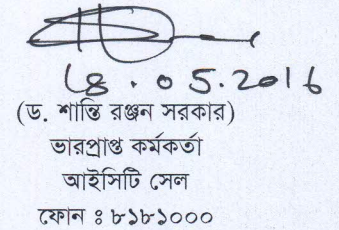 18.05.2016
(ড. শান্তি রঞ্জন সরকার)
ভারপ্রাপ্ত কর্মকর্তা
আইসিটি সেল
ফোন ঃ ৮১৮১০০০